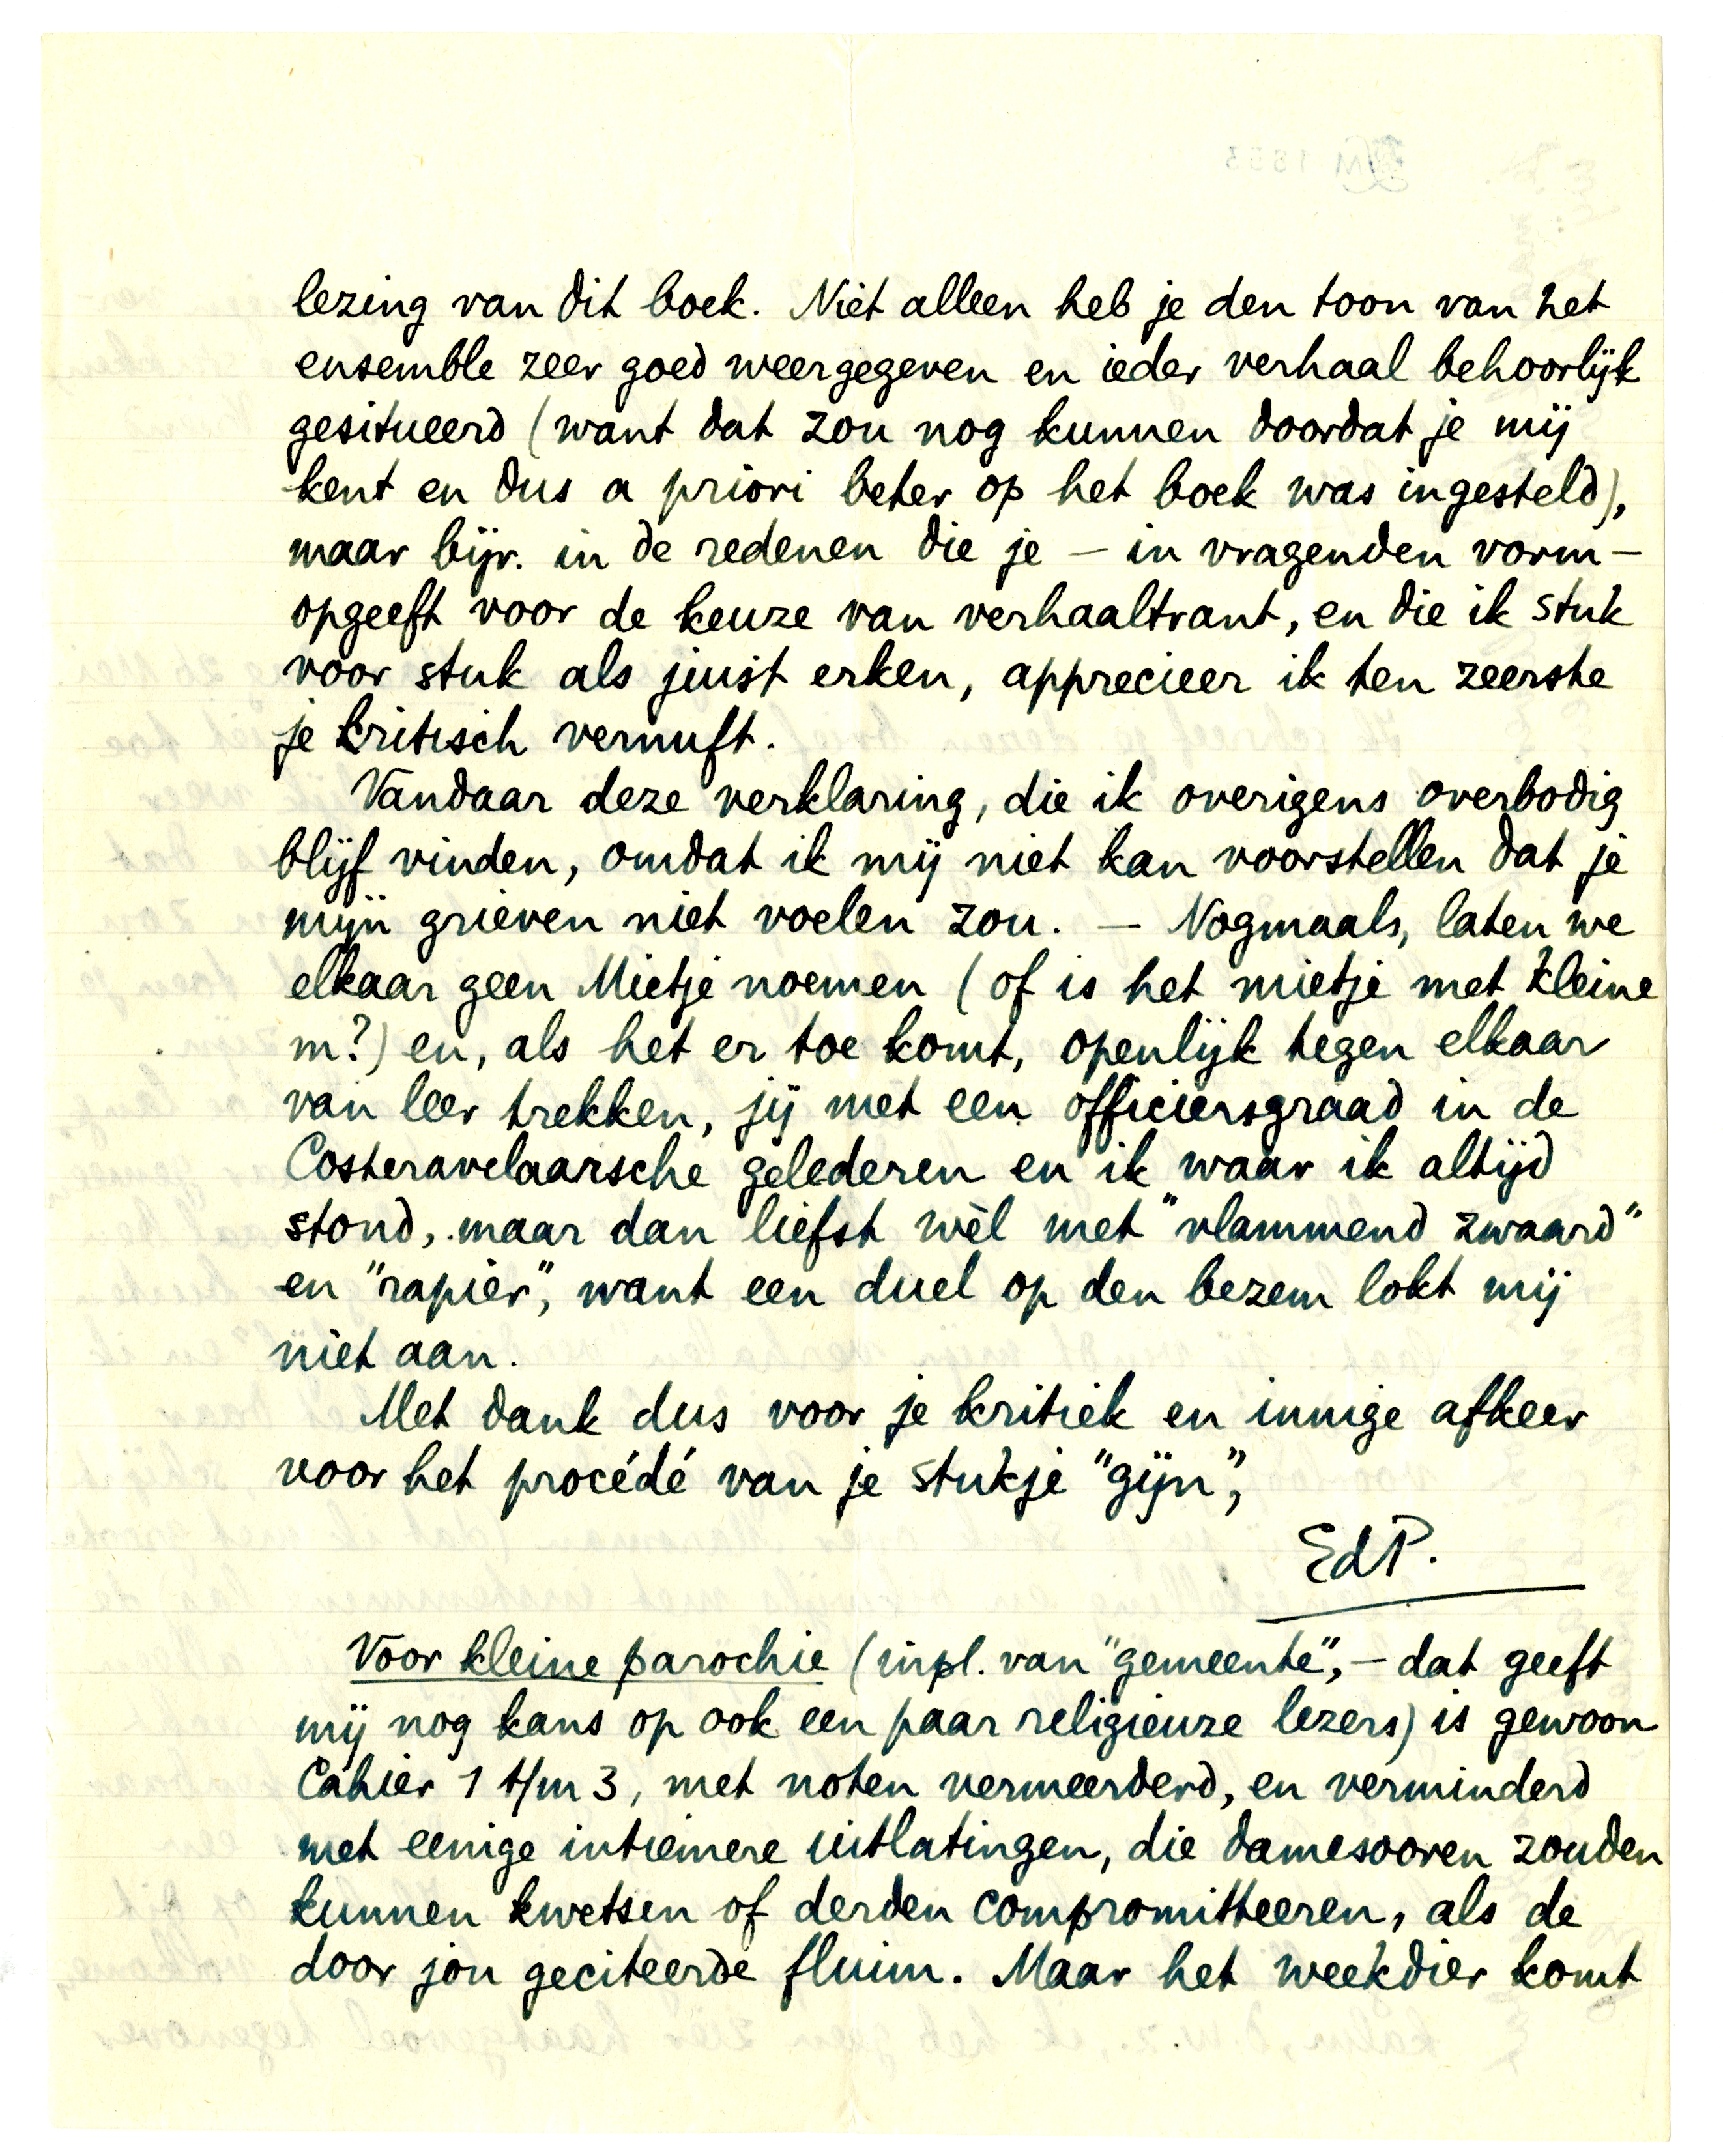 lezing van dit boek. Niet alleen heb je den toon van het
ensemble zeer goed weergegeven en ieder verhaal behoorlijk
gesitueerd (want dat zou nog kunnen doordat je mij
kent en dus a priori beter op het boek was ingesteld),
maar bijv. in de redenen die je — in vragenden vorm —
opgeeft voor de keuze van verhaaltrant, en die ik stuk
voor stuk als juist erken, apprecieer ik ten zeerste
je kritisch vernuft.
Vandaar deze verklaring, die ik overigens overbodig
blijf vinden, omdat ik mij niet kan voorstellen dat je
mijn grieven niet voelen zou. — Nogmaals, laten we
elkaar geen Mietje noemen (of is het mietje met kleine
m?) en, als het er toe komt, openlijk tegen elkaar
van leer trekken, jij met een officiersgraad in de
Costeravelaarsche gelederen en ik waar ik altijd
stond, maar dan liefst wèl met "vlammend zwaard"
en "rapier", want een duel op den bezem lokt mij
niet aan.
Met dank dus voor je kritiek en innige afkeer
voor het procédé van je stukje "gijn",
EdP.
Voor kleine parochie (inpl. van "gemeente", — dat geeft
mij nog kans op ook een paar religieuze lezers) is gewoon
Cahier 1 t/m 3, met noten vermeerderd, en verminderd
met eenige intiemere uitlatingen, die damesooren zouden
kunnen kwetsen of derden compromitteeren, als de
door jou geciteerde fluim. Maar het weekdier komt